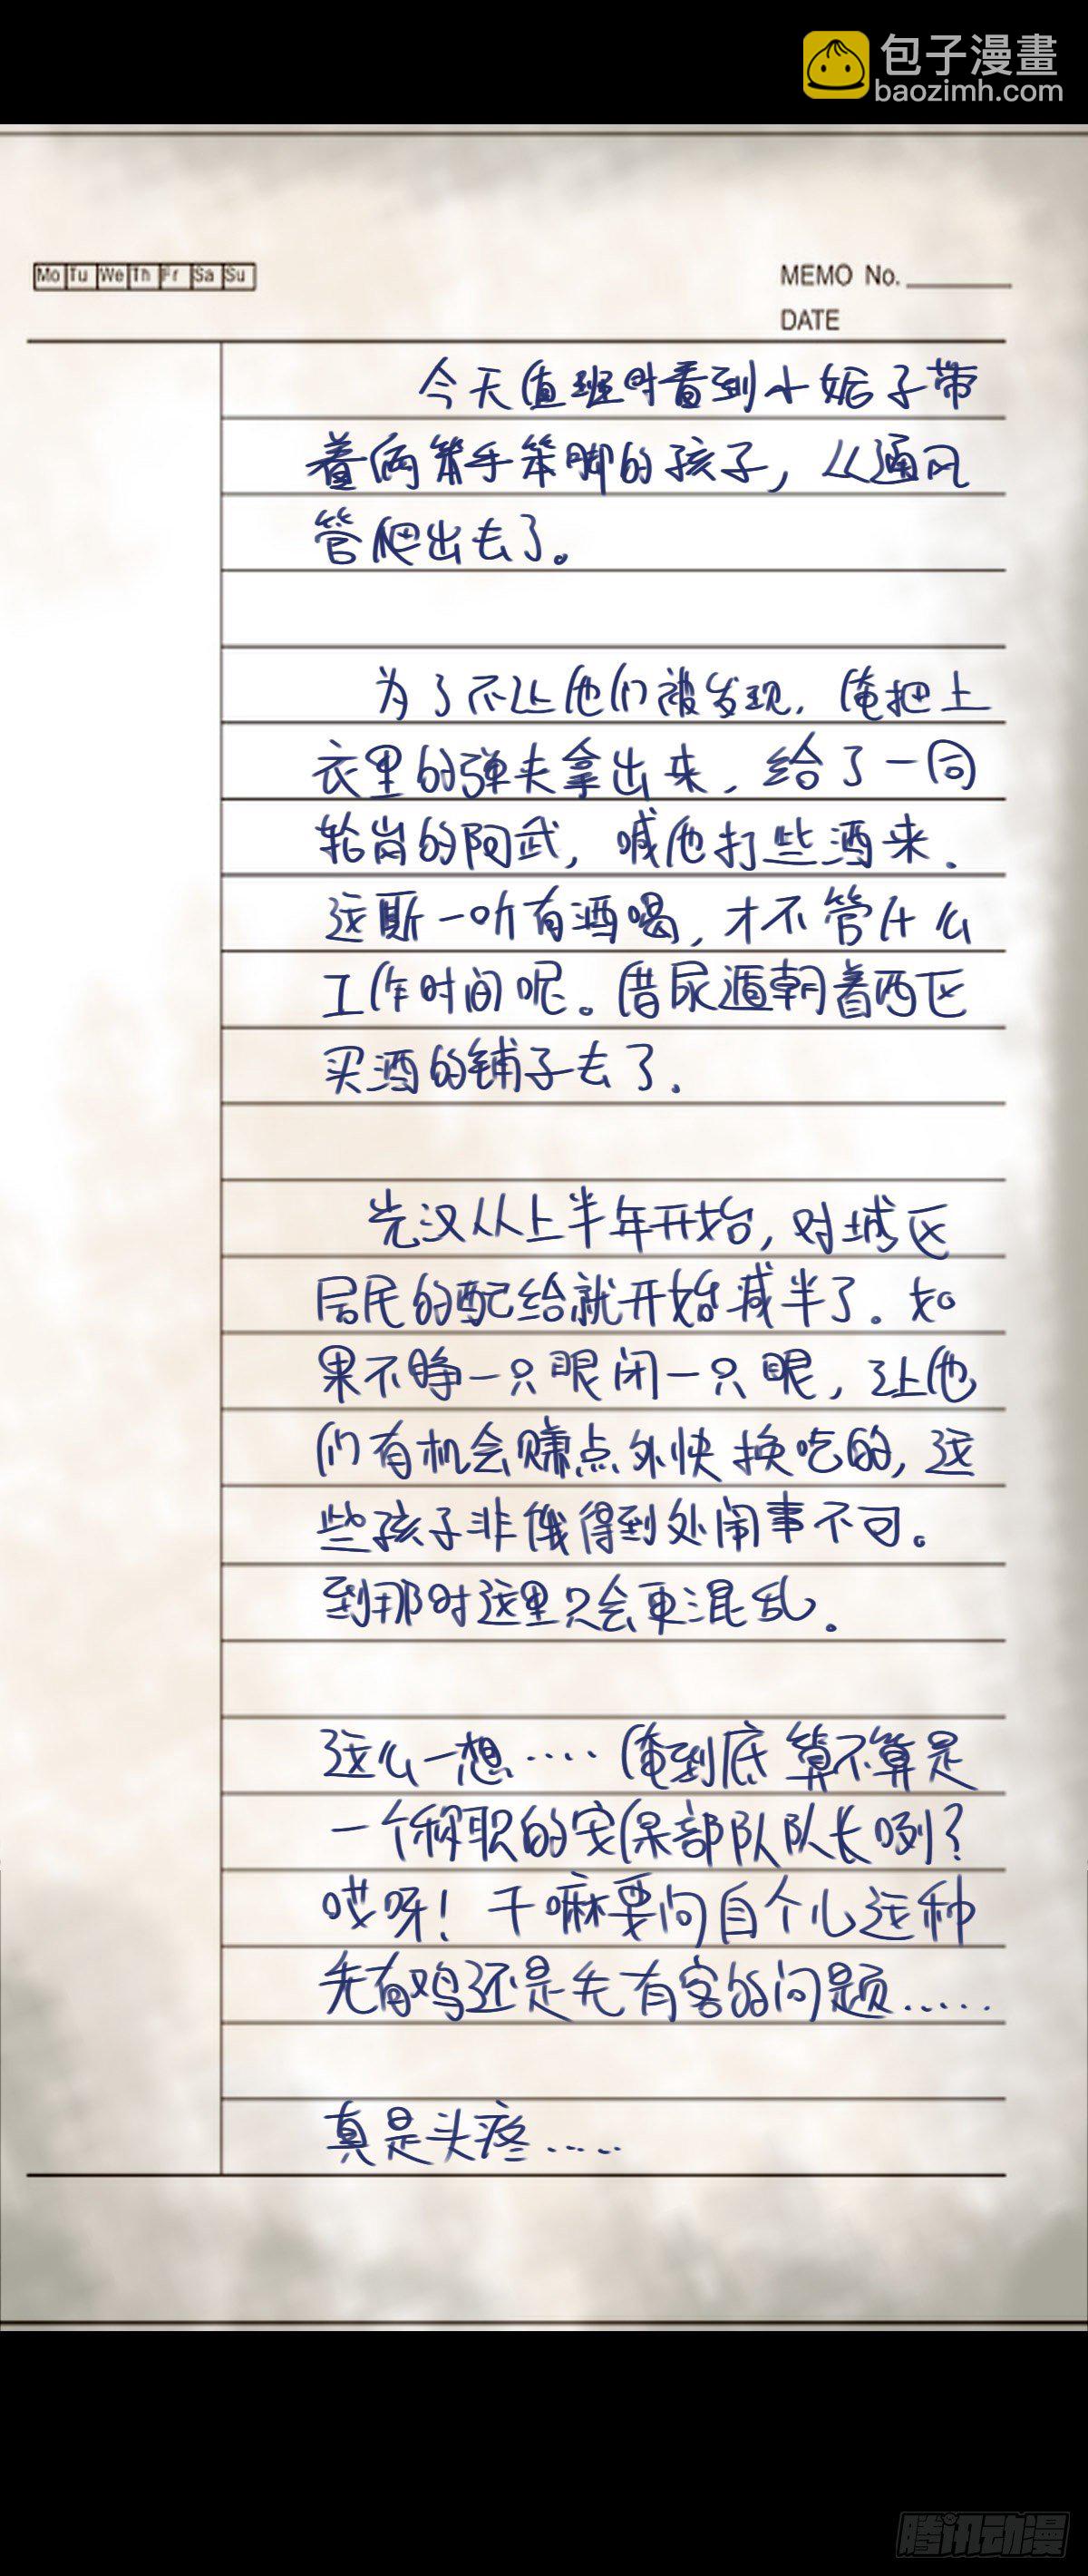 包子漫畫
baozimh.com
Mo Tu We Th Fr Sa Su
MEMO No.
DATE
今天值班时看到小妮子带
着俩笨手笨脚的孩子，从通风
管爬出去了。
为了不让他们被发现，俺把上
衣里的弹夹拿出来，给了一同
轮岗的阿武，喊他打些酒来．
这厮一听有酒喝，才不管什么
工作时间呢。借尿遁朝着西区
买酒的铺子去了．
先汉从上半年开始，对城区
居民的配给就开始减半了。如
果不睁一只眼闭一只眼，让他
们有机会赚点外快换吃的，这
些孩子非饿得到处闹事不可。
到那时这里只会更混乱．
这么一想……俺到底算不算是
一个称职的安保部队队长咧？
哎呀！干嘛要问自个儿这种
先有鸡还是先有窝的问题……
真是头疼……
腾讯动漫